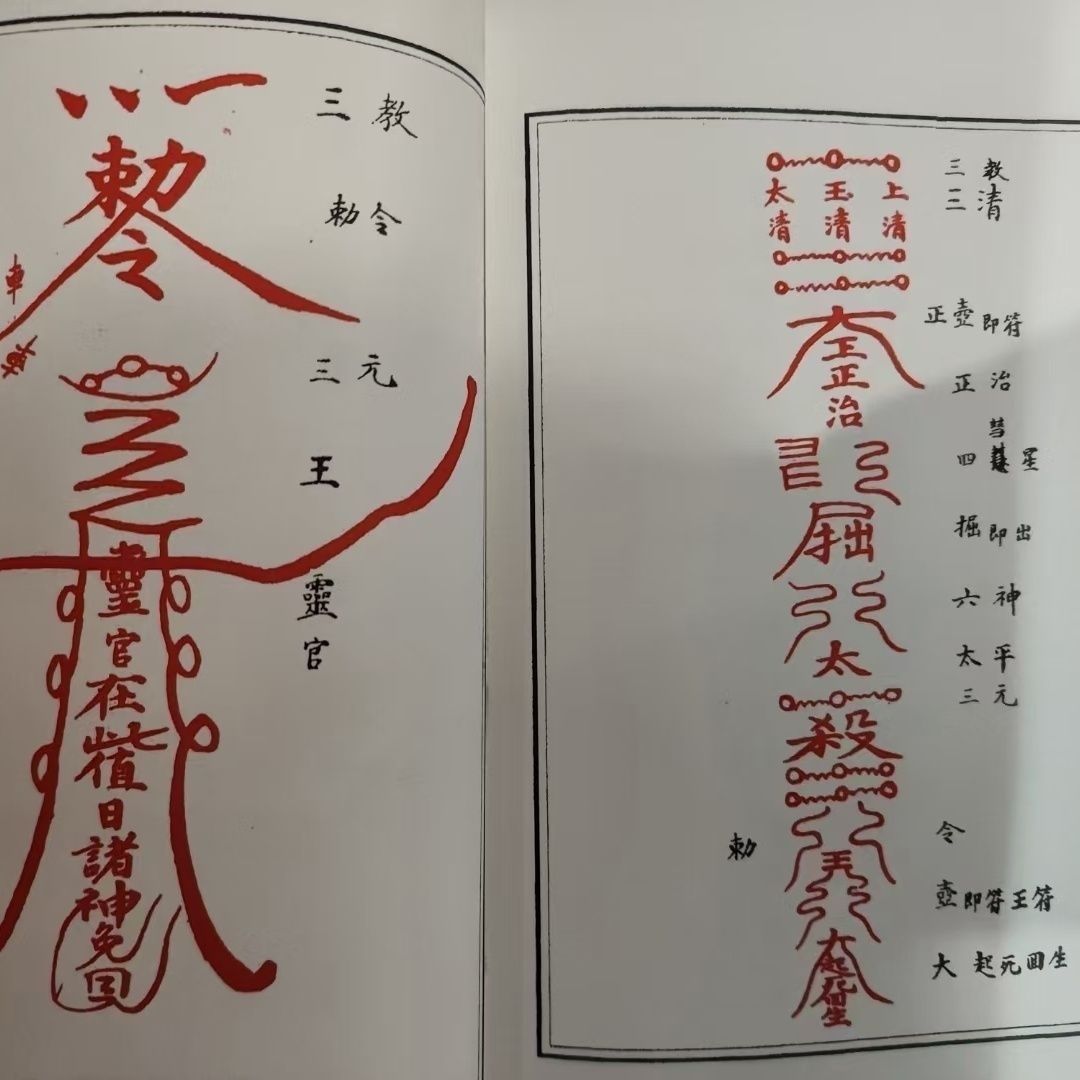 勅令
靈
官
在
此
值
日
諸
神
免
回
三教
勅令
三元
王
靈
官
太清 玉清 上清
正
治
屈
太
殺
三教
三清
正壺即符
正治
四彗星
掘即出
六神
太平
三元
勅令
壺即符王符
大起死回生